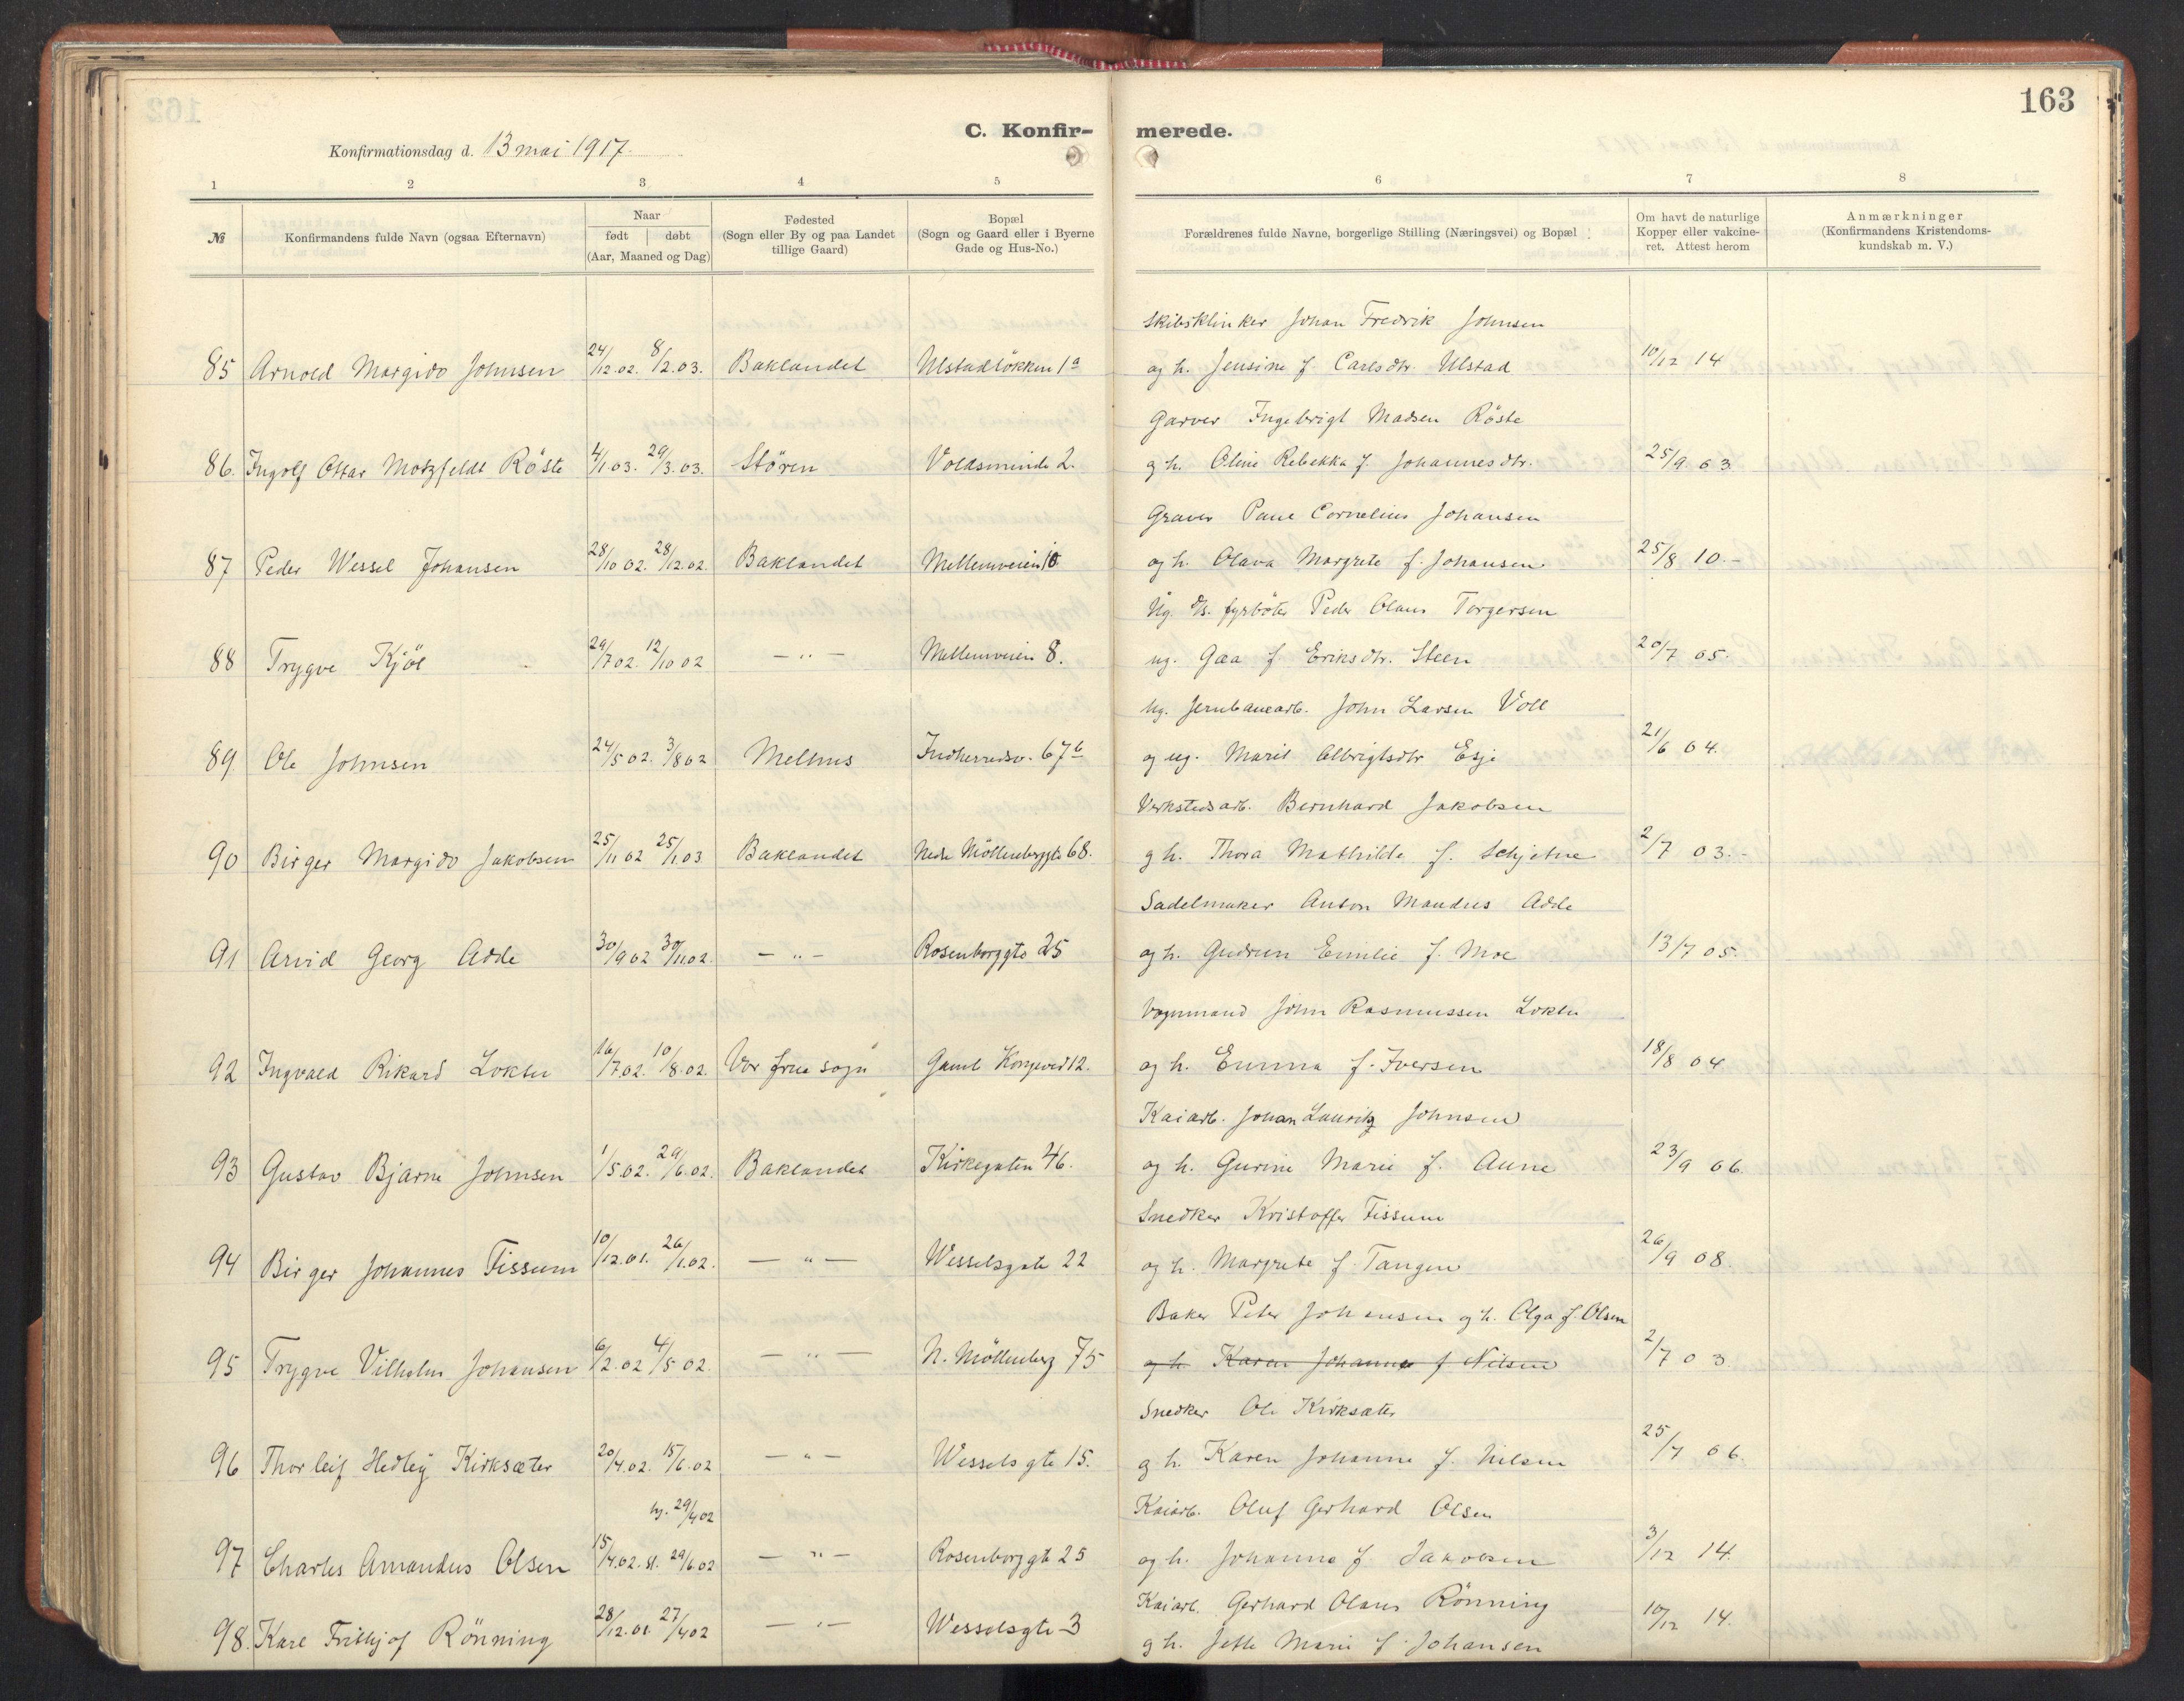 163
C. Konfir- merede.
Konfirmationsdag d. 13 mai 1917.
1 2 3 4 5 6 7 8
№
Konfirmandens fulde Navn (ogsaa Efternavn)
Naar
født | døbt
(Aar, Maaned og Dag)
Fødested
(Sogn eller By og paa Landet
tillige Gaard)
Bopæl
(Sogn og Gaard eller i Byerne
Gade og Hus-No.)
Forældrenes fulde Navne, borgerlige Stilling (Næringsvei) og Bopæl
Om havt de naturlige
Kopper eller vakcine-
ret. Attest herom
Anmærkninger
(Konfirmandens Kristendoms-
kundskab m. V.)
Skibsklinker Johan Fredrik Johnsen
85 Arnold Margido Johnsen 24/12.02. 8/2.03. Baklandet Ulstadløkken 1a og h. Jensine f. Carlsdtr. Ulstad 10/12 14
Garver Ingebrigt Madsen Röste
86. Ingolf Ottar Motzfeldt Röste 4/1.03. 29/3.03. Stören Voldsminde 2. g h. Oline Rebekka f. Johannesdtr. 25/9. 03.
Graver Paul Cornelius Johansen
87 Peder Wessel Johansen 28/10 02. 28/12.02. Baklandet Mellemveien 10 og h. Olava Margrete f. Johansen 25/8 10.-
Ug. d/s. fyrböter Peder Olaus Torgersen
88 Trygve Kjöl 29/7 02. 12/10 02 — " — Mellemveien 8. ug. Gaa f. Eriksdtr. Steen 20/7 05.
Ug. Jernbanearb. John Larsen Voll
89 Ole Johnsen 24/5 02. 3/8 02 Melhus Indherredsv. 67b og ug. Marit Olbrigtsdtr Esje 21/6 04.
Verkstedsarb. Bernhard Jakobsen
90 Birger Margido Jakobsen 25/11 02 25/1.03 Baklandet Nedre Möllenberggt 68. g h. Thora Mathilde f. Schjetne 2/7 03.-
Sadelmaker Anton Mandius Adde
91 Arvid Georg Adde 30/9 02 30/11 02. — " — Rosenborggt 25 og h. Gudrun Emilie f. Moe 13/7 05.
Vognmand John Rasmussen Lokten
92 Ingvald Rikard Lokten 16/7.02. 10/8.02. Vor frue sogn Gamle Kongevei 12. og h. Emma f. Iversen 18/8 04
Kaiarb. Johan Lauritz Johnsen
93 Gustav Bjarne Johnsen 1/5.02. 29/6.02. Baklandet Kirkegaten 46. og h. Gurine Marie f. Aune 23/9 06.
Snedker Kristoffer Fissum
94 Birger Johannes Fissum 10/12.01. 26/1.02. — " — Wesselsgate 22 og h. Margrete f. Tangen 26/9 08.
Baker Peter Johansen g h. Olga f. Olsen
95 Trygve Vilhelm Johansen 6/2.02 4/5 02. — " — N. Möllenberg 75 g h Karen Johanne f Nilsen 2/7 03.
Snedker Ole Kirksæter
96 Thorleif Hedley Kirksæter 20/4.02. 15/6.02 — " — Wessels gte 15. g h. Karen Johanne f. Nilsen 25/7 06.
hj. 29/4 02 Kaiarb. Oluf Gerhard Olsen
97 Charles Amandus Olsen 15/4.02. st. 29/6.02 — " — Rosenborggt 25 og h. Johanna f. Jakobsen 3/12 14.
Kaiarb. Gerhard Olaus Rönning
98. Karl Frithjof Rönning 28/12.01. 27/4 02 — " — Wesselsgte 3 g h. Jette Marie f. Johansen 10/12 14.